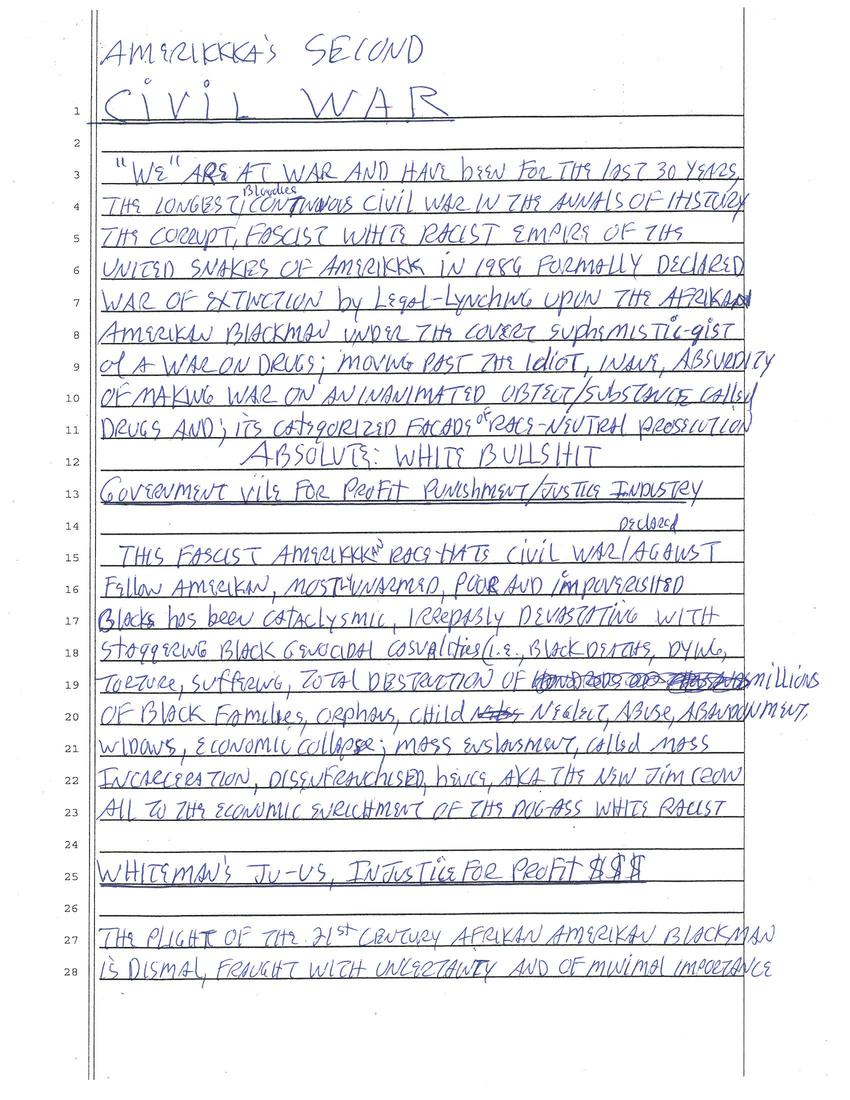 AMERIKKKA'S SECOND
1 CIVIL WAR
2
3 "WE" ARE AT WAR AND HAVE bEEN FOR THE lAST 30 YEARS,
Bloodies
4 THE LONGEST/CONTINUOUS CIVIL WAR IN THE ANNALS OF HISTORY
5 THE CORRUPT, FASCIST WHITE RACIST EMPIRE OF THE
6 UNITED SNAKES OF AMERIKKK IN 1986 FORMALLY DECLARED
7 WAR OF EXTINCTION by LEGAL-LYNCHING UPON THE AFRIKAN
8 AMERIKAN BLACKMAN UNDER THE COVERT SUPHEMISTIC-GIST
9 of A WAR ON DRUGS; MOVING PAST THE IdIOT, INANE, ABSURDITY
10 OF MAKING WAR ON AN INANIMATED OBJECT/SUBSTANCE CAllEd
11 DRUGS AND; ITS CATEGORIZED FACADE OF RACE-NEUTRAL PROSECUTION
12 ABSOLUTE: WHITE BULLSHIT
13 GOVERNMENT VILE FOR PROFIT PUNISHMENT/JUSTICE INDUSTRY
14
DECLARED
15 THIS FASCIST AMERIKKKAN RACE-HATE CIVIL WAR/AGAINST
16 FELLOW AMERIKAN, MOSTLY UNARMED, POOR AND IMPOVERISHED
17 BLACKS has bEEN CATACLYSMIC, IRREPABLY DEVASTATING WITH
18 STAGGERING BLACK GENOCIDAL CASUALITIES (I.E., BLACK DEATHS, DYING,
19 TORTURE, SUFFERING, TOTAL DESTRUCTION OF MILLIONS
20 OF BLACK FAMILIES, ORPHANS, CHILD NEGLECT, ABUSE, ABANDONMENT,
21 WIDOWS, ECONOMIC COLLAPSE; MASS ENSLAVEMENT, CALLED MASS
22 INCARCERATION, DISENFRANCHISED, hENCE, AKA THE NEW JIM CROW
23 ALL TO THE ECONOMIC ENRICHMENT OF THE DOG-ASS WHITE RACIST
24
25 WHITEMAN'S JU-US, INJUSTICE FOR PROFIT $$$
26
27 THE PLIGHT OF THE 21st CENTURY AFRIKAN AMERIKAN BLACKMAN
28 IS DISMAL, FRAUGHT WITH UNCERTAINTY AND OF MINIMAL IMPORTANCE